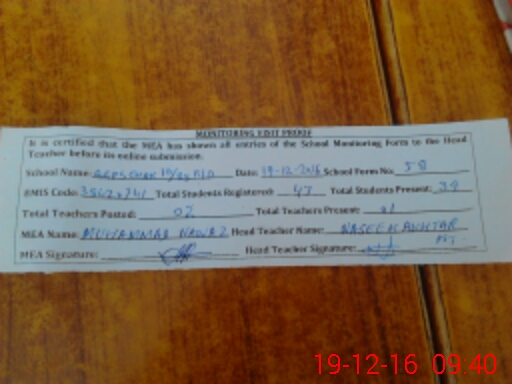 MONITORING VISIT PROOF
It is certified that the MEA has shown all entries of the School Monitoring Form to the Head
Teacher before its online submission.
School Name: Date: 19-12-2016 School Form No: 58
EMIS Code: Total Students Registered: 47 Total Students Present: 39
Total Teachers Posted: 02 Total Teachers Present: 01
MEA Name: MUHAMMAD NAWAZ Head Teacher Name: NASEEM AKHTAR
MEA Signature: Head Teacher Signature:
19-12-16 09:40